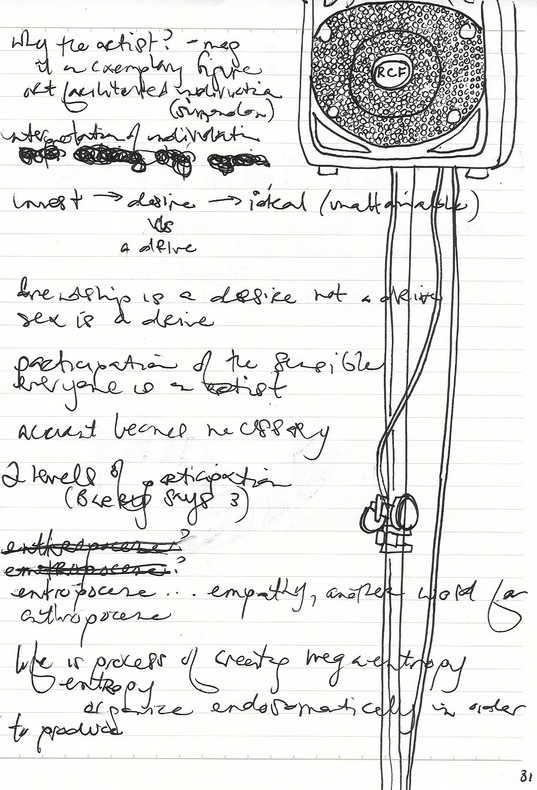 RCF
why the artist? - map
it an exemplary figure
art facilitated individuation
(Simondon)
interpretation of individuation
invest → desire → ideal (unattainable)
Vs
a drive
friendship is a desire not a drive
sex is a drive
participation of the sensible
everyone is an artist
account becomes necessary
2 levels of participation
(Barry says 3)
entropocene ... empathy, another word for
anthropocene
life is process of creating negentropy
entropy
organize endosomatically in order
to produce
31